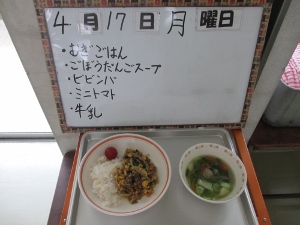 4月17日月曜日
・むぎごはん
・ごぼうだんごスープ
・ビビンバ
・ミニトマト
・牛乳